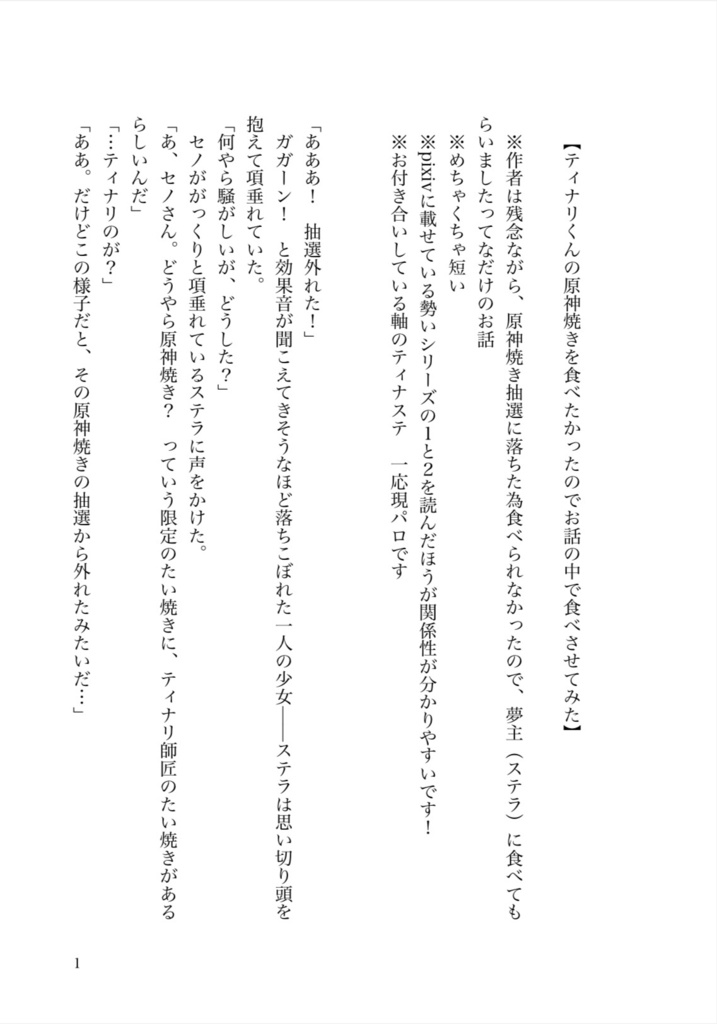 【ティナリくんの原神焼きを食べたかったのでお話の中で食べさせてみた】
※作者は残念ながら、原神焼き抽選に落ちた為食べられなかったので、夢主（ステラ）に食べても
らいましたってなだけのお話
※めちゃくちゃ短い
※pixivに載せている勢いシリーズの1と2を読んだほうが関係性が分かりやすいです！
※お付き合いしている軸のティナステ　一応現パロです
「あああ！　抽選外れた！」
ガガーン！　と効果音が聞こえてきそうなほど落ちこぼれた一人の少女――ステラは思い切り頭を
抱えて項垂れていた。
「何やら騒がしいが、どうした？」
セノががっくりと項垂れているステラに声をかけた。
「あ、セノさん。どうやら原神焼き？　っていう限定のたい焼きに、ティナリ師匠のたい焼きがある
らしいんだ」
「…ティナリのが？」
「ああ。だけどこの様子だと、その原神焼きの抽選から外れたみたいだ…」
1